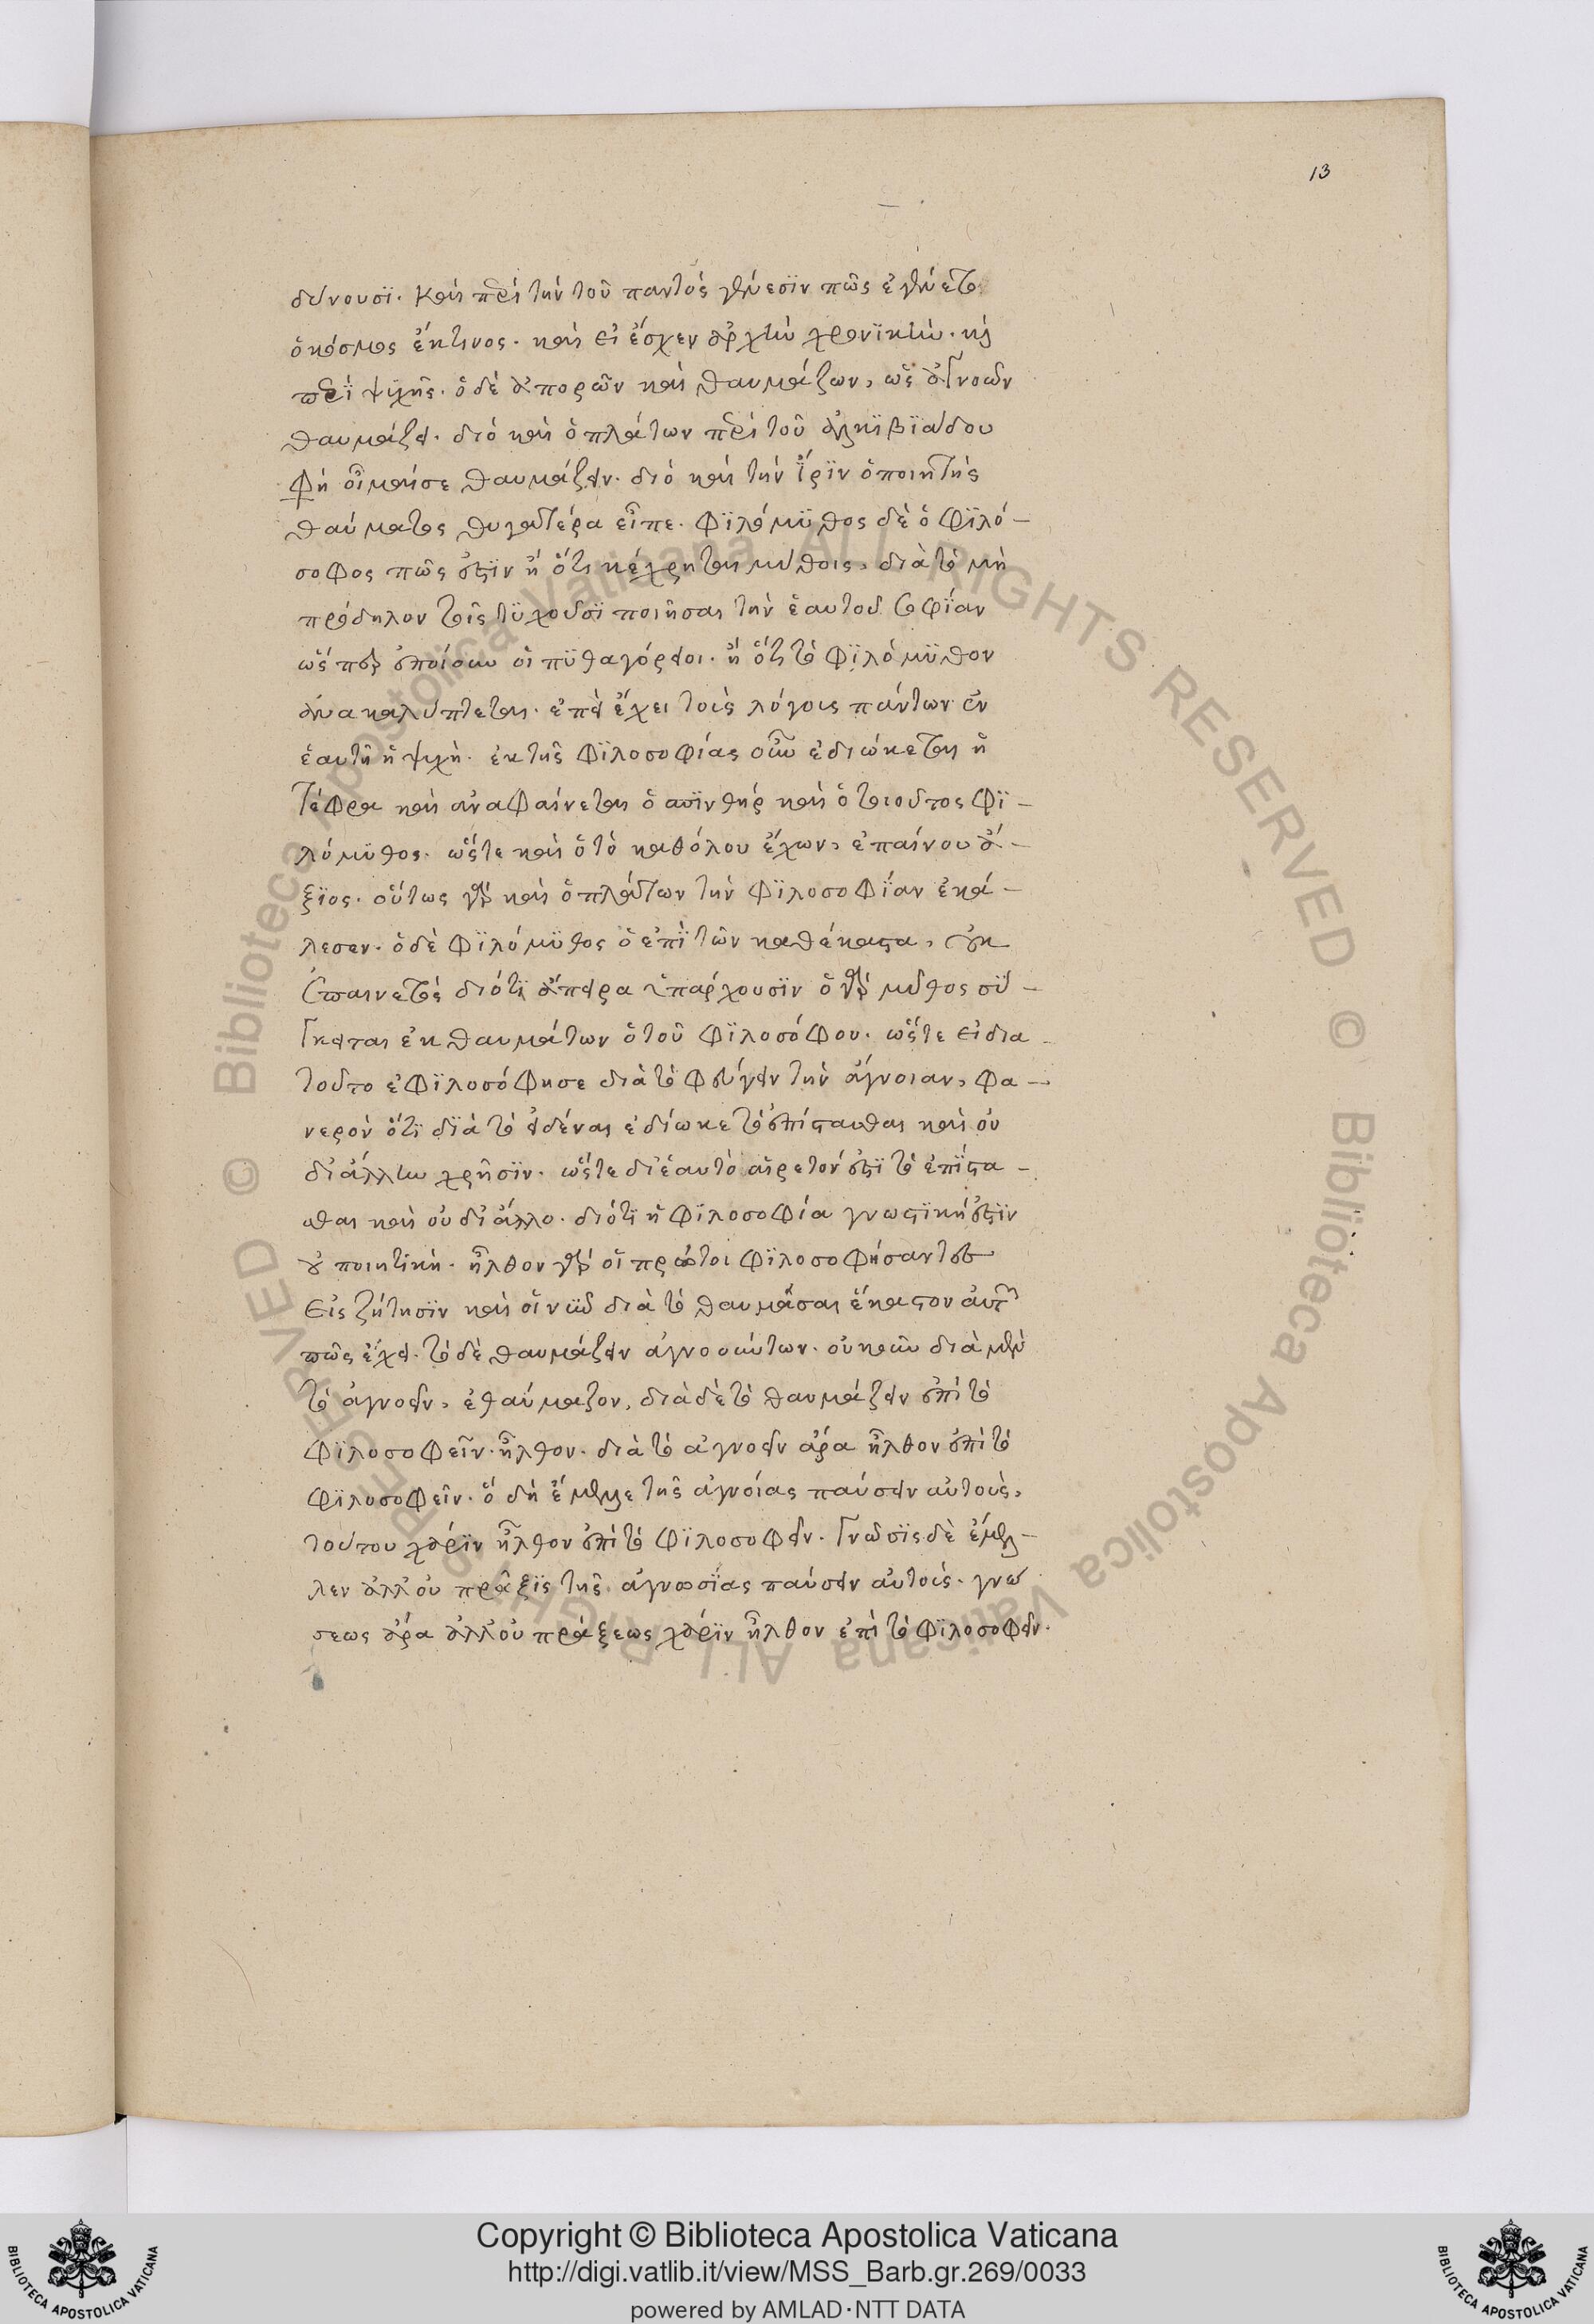 13
δύνουσϊ. καὶ περὶ τὴν τοῦ παντὸς γένεσϊν πῶς ἐγένετο
ὁ κόσμος ἔκτινος. καὶ εἰ ἔσχεν ἀρχὴν χρονϊκὴν. κς
περὶ ψϋχῆς. ὁ δὲ ἀπορῶν καὶ θαυμάζων, ὡς ἀγνοῶν
θαυμάζει. διὸ καὶ ὁ πλάτων περὶ τοῦ ἀλκϊβϊάδου
φὴ οἶμαί σε θαυμάζειν. διὸ καὶ τὴν ἶρϊν ὁ ποιητὴς
θαύματος θυγατέρα εἶπε. φϊλόμϋθος δὲ ὁ φϊλό-
σοφος πῶς ἐστϊν ἢ ὅτι κέχρηται μύθοις, διὰ τὸ μὴ
πρόδηλον τοῖς τϋχοῦσϊ ποιῆσαι τὴν ἑαυτοῦ σοφϊαν
ὥσπερ ἐποίουν οἱ πϋθαγόρειοι. ἢ ὅτι τὸ φϊλόμϋθον
ἀνακαλύπτεται. ἐπεὶ ἔχει τοὶς λόγοις πάντων ἐν
ἑαυτῆ ἡ ψυχὴ. ἐκ τῆς φϊλοσοφίας οὖν ἐδιώκεται ἡ
τέφρα καὶ ἀναφαίνεται ὁ σπϊνθὴρ καὶ ὁ τοιοῦτος φϊ-
λόμϋθος. ὥστε καὶ ὁ τὸ καθόλου ἔχων, ἐπαίνου ἄ-
ξϊος. οὕτως γὰρ καὶ ὁ πλάτων τὴν φϊλοσοφϊαν ἐκά-
λεσεν. ὁ δὲ φϊλόμϋθος ὁ ἐπὶ τῶν καθέκαστα, οὐκ
ἐπαινετὸς διότϊ ἄπειρα ὑπάρχουσϊν ὁ γὰρ μῦθος σύ-
γκειται ἐκ θαυμάτων ὁ τοῦ φϊλοσόφου. ὥστε εἰ δια
τοῦτο ἐφϊλοσόφησε διὰ τὸ φεύγειν τὴν ἄγνοιαν, φα-
νερὸν ὅτϊ δϊὰ τὸ εἰδέναι ἐδίωκε τὸ ἐπίστασθαι καὶ οὐ
δι' ἄλλην χρῆσϊν. ὥστε δι' ἑαυτὸ αἱρετόν ἐστϊ τὸ ἐπϊστα-
σθαι καὶ οὐ δι' ἄλλο. διότϊ ἡ φϊλοσοφία γνωστϊκή ἐστϊν
οὐ ποιητϊκὴ. ἦλθον γὰρ οἱ πρῶτοι φϊλοσοφήσαντες
εἰς ζήτησϊν καὶ οἱ νῦν διὰ τὸ θαυμᾶσαι ἕκαστον αὐτῶν
πῶς ἔχει. τὸ δὲ θαυμάζειν ἀγνοούντων. οὐκοῦν διὰ μὲν
τὸ ἀγνοεῖν, ἐθαύμαζον, διὰ δὲ τὸ θαυμάζειν ἐπὶ τὸ
φϊλοσοφεῖν. ἦλθον. διὰ τὸ ἀγνοεῖν ἄρα ἦλθον ἐπὶ τὸ
φϊλοσοφεῖν. ὅ δὴ ἔμελλε τῆς ἀγνοίας παύσειν αὐτοὺς,
τούτου χάρϊν ἦλθον ἐπὶ τὸ φϊλοσοφεῖν. γνῶσϊς δὲ ἔμελ-
λεν ἀλλ' οὐ πρᾶξϊς τῆς ἀγνωσϊας παύσειν αὐτοὺς. γνώ
σεως ἄρα ἀλλ' οὐ πράξεως χάρϊν ἦλθον ἐπὶ τὸ φϊλοσοφεῖν.
© Biblioteca Apostolica Vaticana ALL RIGHTS RESERVED © Biblioteca Apostolica Vaticana ALL RIGHTS RESERVED
BIBLIOTECA APOSTOLICA VATICANA
Copyright © Biblioteca Apostolica Vaticana
http://digi.vatlib.it/view/MSS_Barb.gr.269/0033
powered by AMLAD·NTT DATA
BIBLIOTECA APOSTOLICA VATICANA